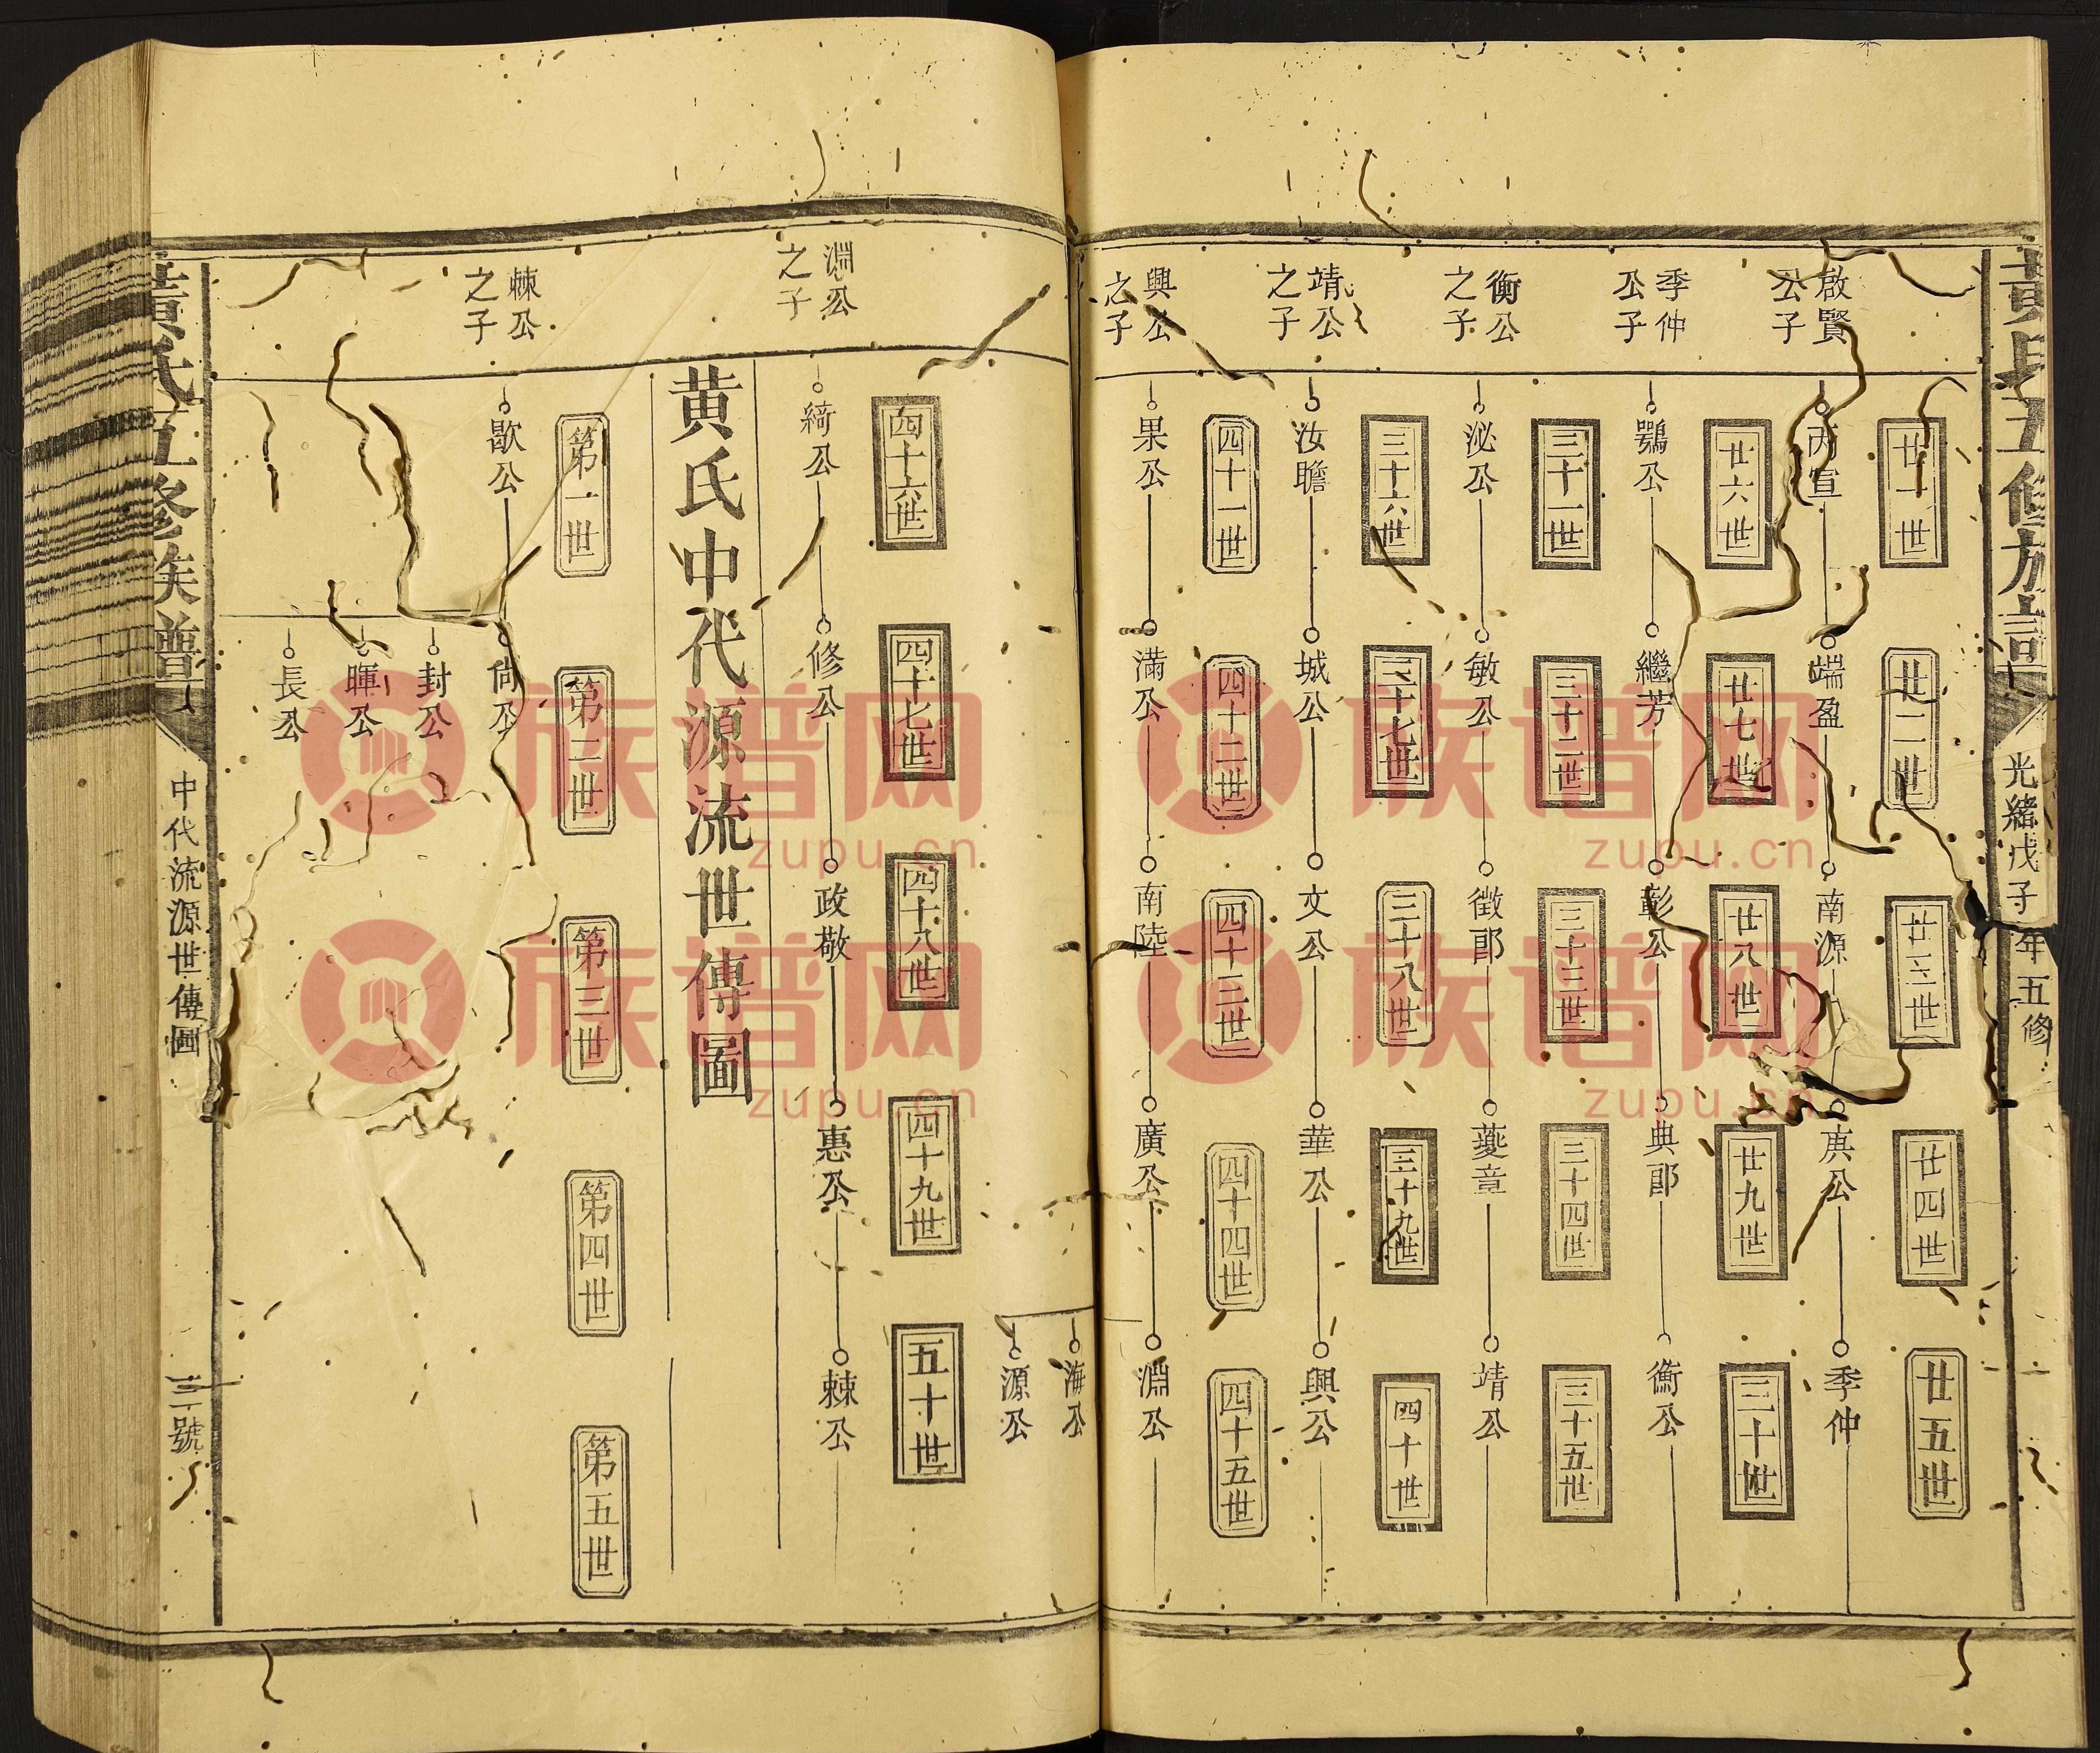 黃氏五修族譜
光緒戊子年五修
廿一世
廿二世
廿三世
廿四世
廿五世
啟賢公子
丙宣
端盈
南源
庚公
季仲
廿六世
廿七世
廿八世
廿九世
三十世
季仲公子
鶚公
繼芳
彰公
典郎
衡公
三十一世
三十二世
三十三世
三十四世
三十五世
衡公之子
泌公
敏公
徵郎
夔章
靖公
三十六世
三十七世
三十八世
三十九世
四十世
靖公之子
汝瞻
城公
文公
華公
興公
四十一世
四十二世
四十三世
四十四世
四十五世
興公之子
果公
滿公
南陸
廣公
淵公
海公
源公
四十六世
四十七世
四十八世
四十九世
五十世
淵公之子
綺公
修公
政敬
惠公
棘公
黃氏中代源流世傳圖
第一世
第二世
第三世
第四世
第五世
棘公之子
歇公
尚公
封公
暉公
長公
黃氏五修族譜
中代流源世傳圖
三號
族谱网
zupu.cn
族谱网
zupu.cn
族谱网
zupu.cn
族谱网
zupu.cn